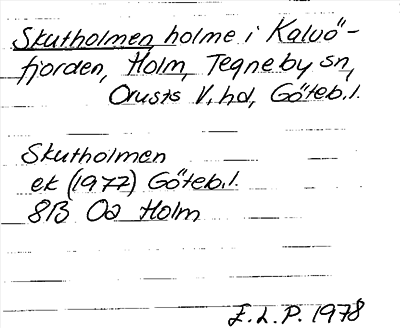 Skutholmen holme i Kalvö-
fjorden, Holm, Tegneby sn,
Orusts V. hd, Göteb.l.
Skutholmen
ek (1977) Göteb.l.
8B 0a Holm
E.L.P. 1978